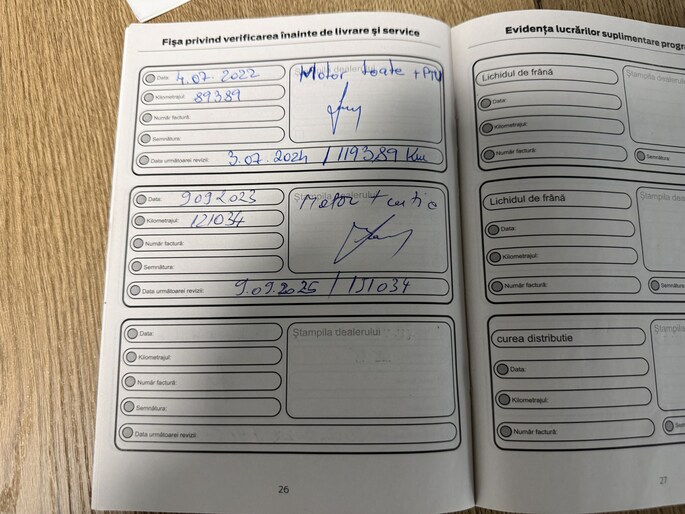 Fișa privind verificarea înainte de livrare și service
Data: 4.07.2022
Ștampila dealerului
Motor toate + PTU
Kilometrajul: 89389
Număr factură:
Semnătura:
Data următoarei revizii: 3.07.2024 / 119389 Km
Data: 9.09.2023
Ștampila dealerului
Motor +
Kilometrajul: 121034
Număr factură:
Semnătura:
Data următoarei revizii: 9.09.2025 / 151034
Data:
Ștampila dealerului
Kilometrajul:
Număr factură:
Semnătura:
Data următoarei revizii:
26
Evidența lucrărilor suplimentare progr
Lichidul de frână
Ștampila dealeru
Data:
Kilometrajul:
Număr factură:
Semnătura:
Lichidul de frână
Ștampila deale
Data:
Kilometrajul:
Număr factură:
Semnătura:
curea distributie
Ștampil
Data:
Kilometrajul:
Număr factură:
Sem
27